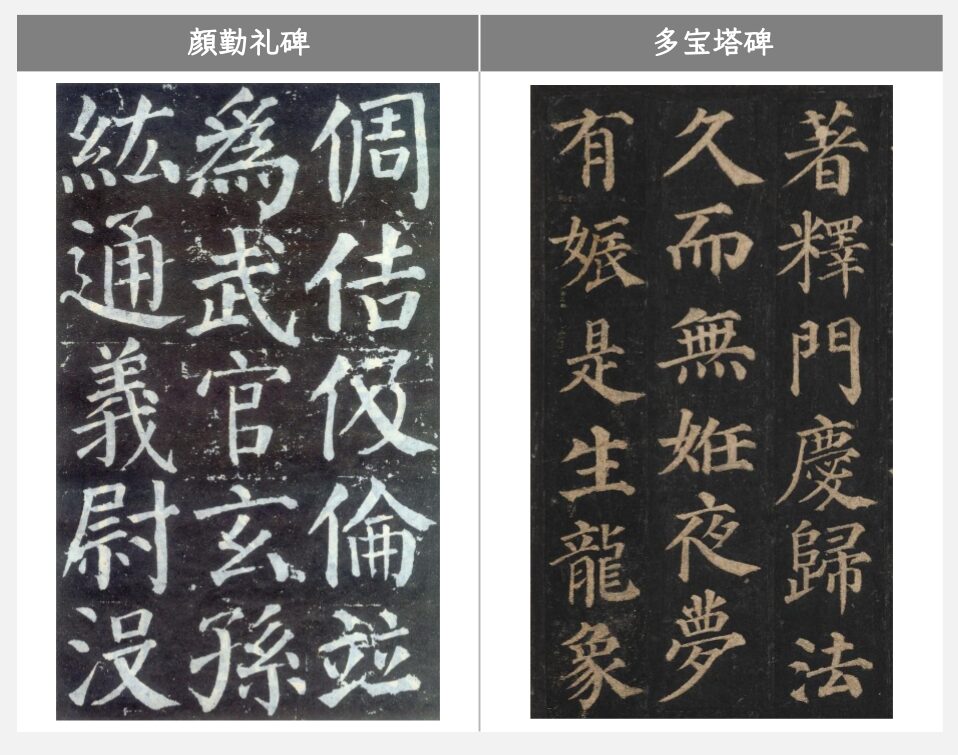 顔勤礼碑
倜佶伋倫並
爲武官玄孫
紘通義尉没
多宝塔碑
著釋門慶歸法
久而無姙夜夢
有娠是生龍象